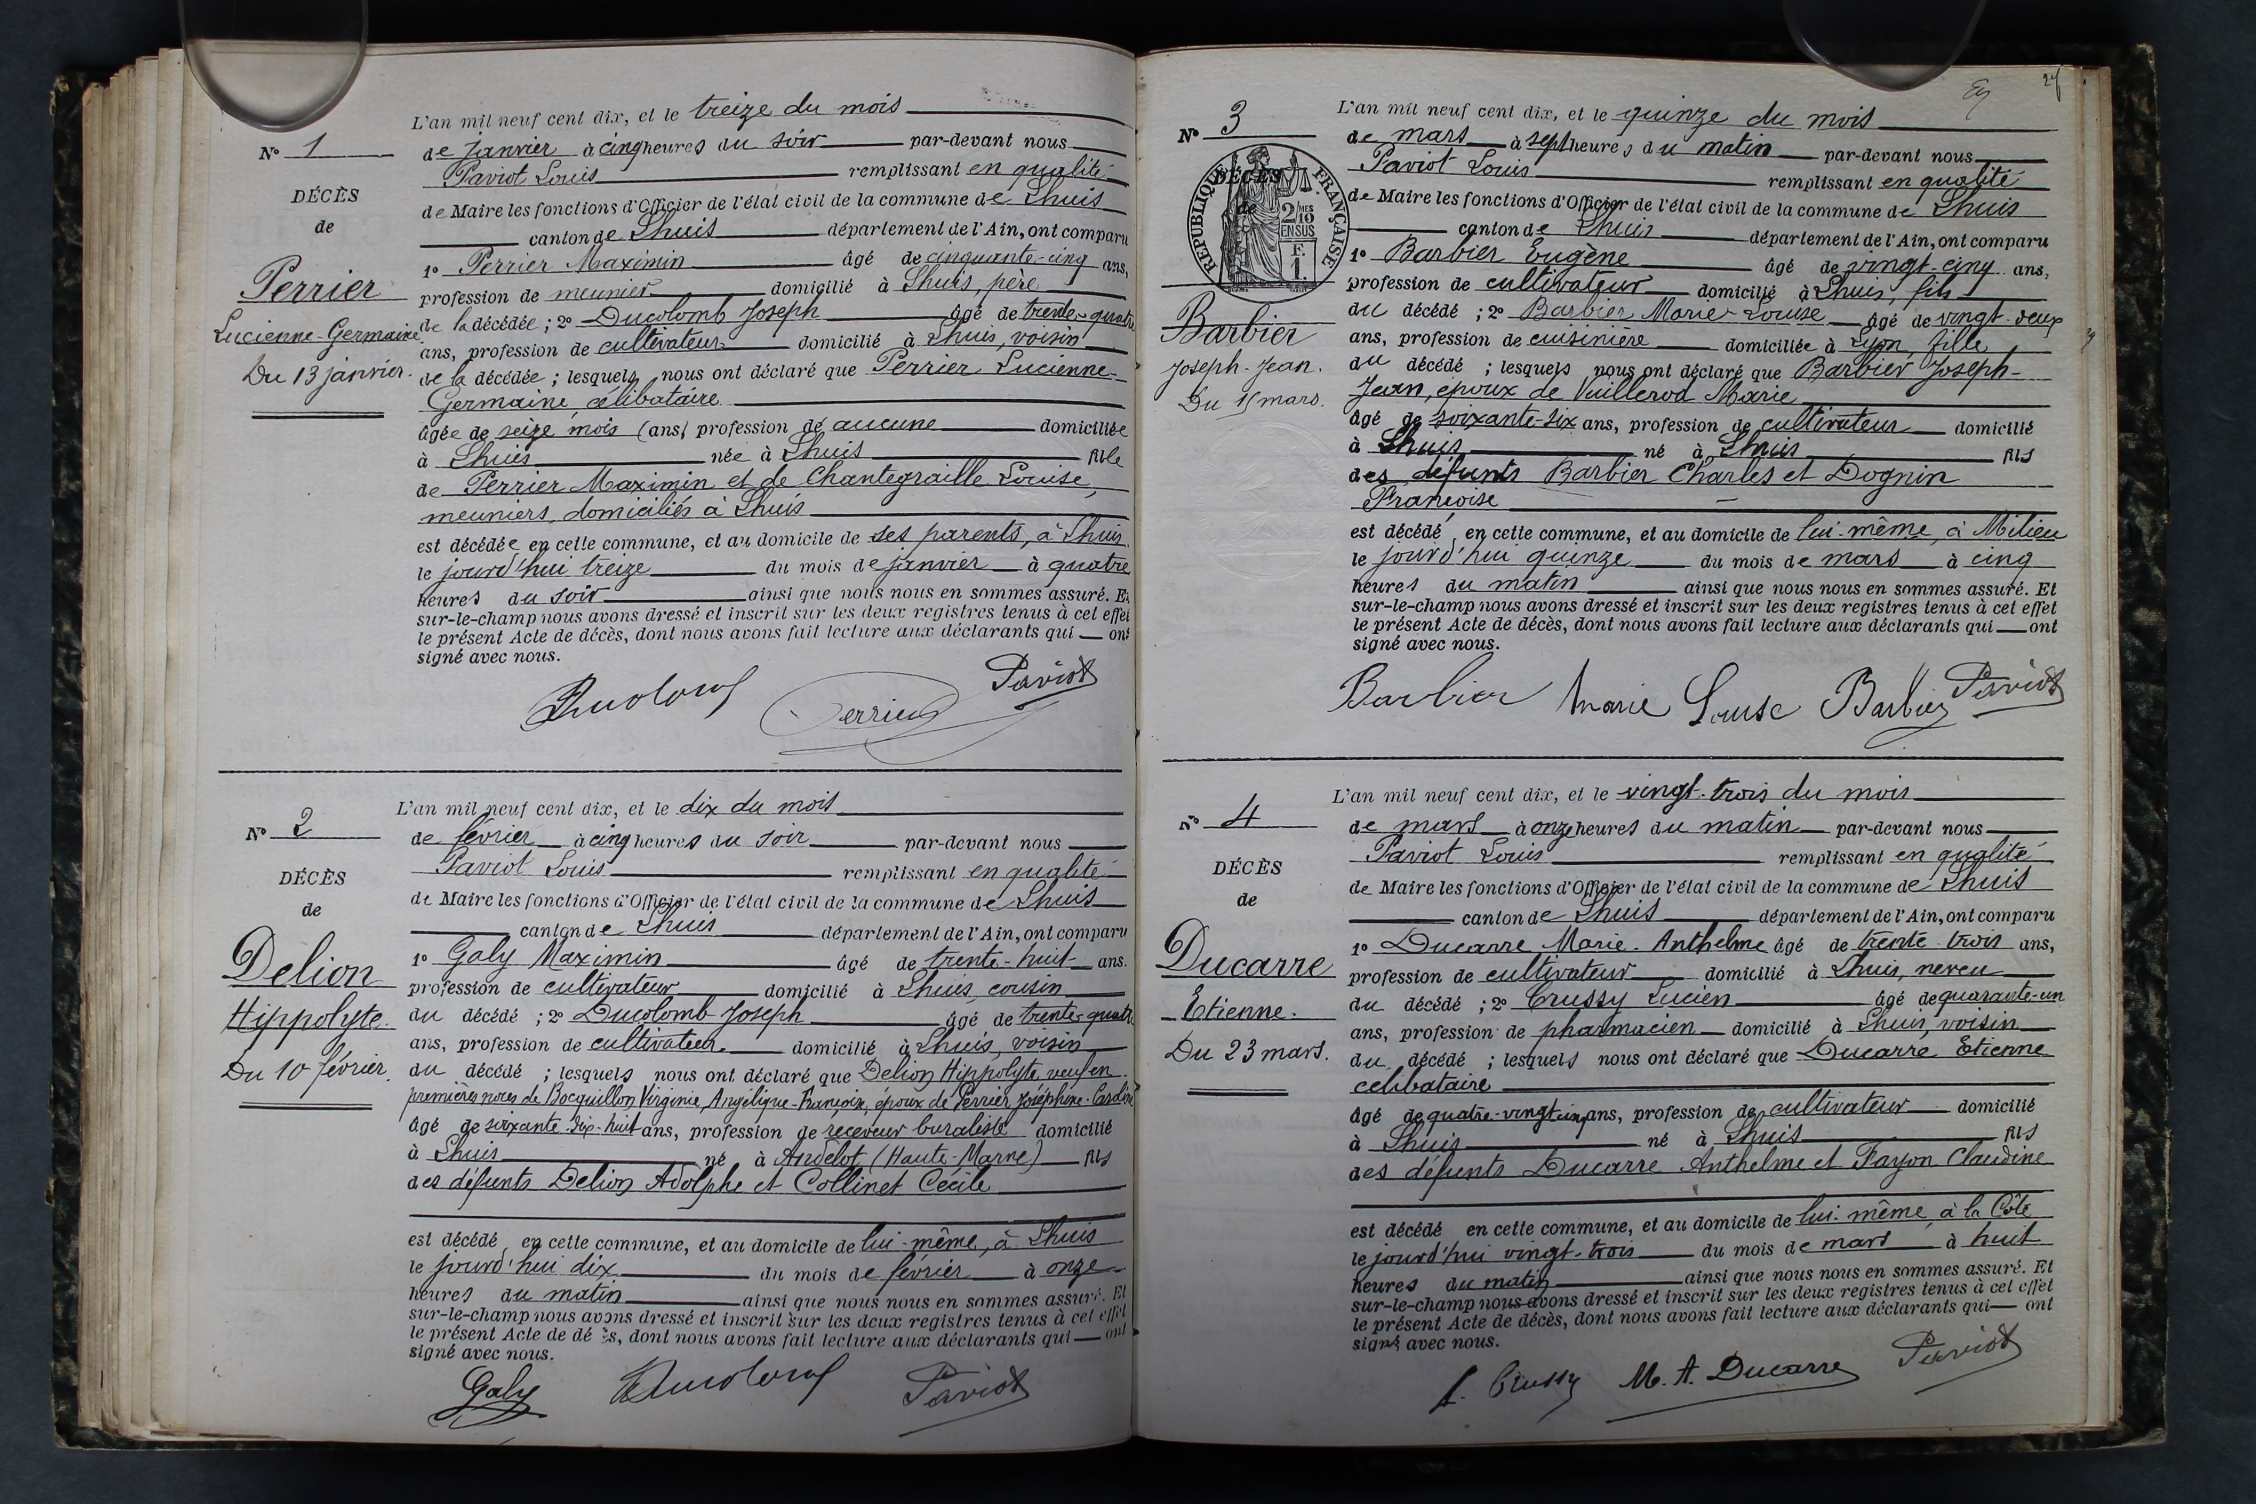 L'an mil neuf cent dix, et le treize du mois
N° 1
de janvier à cinq heures du soir par-devant nous
Paviot Louis remplissant en qualité
DÉCÈS
de Maire les fonctions d'Officier de l'état civil de la commune de Lhuis
de
canton de Lhuis département de l'Ain, ont comparu
1° Perrier Maximin âgé de cinquante-cinq ans,
Perrier
profession de meunier domicilié à Lhuis, père
Lucienne-Germaine
de la décédée ; 2° Ducolomb Joseph âgé de trente-quatre
ans, profession de cultivateur domicilié à Lhuis, voisin
Du 13 janvier.
de la décédée ; lesquels nous ont déclaré que Perrier Lucienne-
Germaine, célibataire
âgée de seize mois (ans) profession de aucune domiciliée
à Lhuis née à Lhuis fille
de Perrier Maximin et de Chantegraille Louise,
meuniers, domiciliés à Lhuis
est décédée en cette commune, et au domicile de ses parents, à Lhuis
le jourd'hui treize du mois de janvier à quatre
heures du soir ainsi que nous nous en sommes assuré. Et
sur-le-champ nous avons dressé et inscrit sur les deux registres tenus à cet effet
le présent Acte de décès, dont nous avons fait lecture aux déclarants qui ont
signé avec nous.
Ducolomb Perrier Paviot
L'an mil neuf cent dix, et le dix du mois
N° 2
de février à cinq heures du soir par-devant nous
Paviot Louis remplissant en qualité
DÉCÈS
de Maire les fonctions d'Officier de l'état civil de la commune de Lhuis
de
canton de Lhuis département de l'Ain, ont comparu
1° Galy Maximin âgé de trente-huit ans.
Delion
profession de cultivateur domicilié à Lhuis, cousin
Hippolyte.
du décédé ; 2° Ducolomb Joseph âgé de trente-quatre
ans, profession de cultivateur domicilié à Lhuis, voisin
Du 10 février.
du décédé ; lesquels nous ont déclaré que Delion Hippolyte, veuf en
premières noces de Bocquillon, Virginie, Angélique-Françoise, époux de Perrier Joséphine-Caroline
âgé de soixante-dix-huit ans, profession de receveur buraliste domicilié
à Lhuis né à Andelot (Haute-Marne) fils
des défunts Delion Adolphe et Collinet Cécile
est décédé en cette commune, et au domicile de lui-même, à Lhuis
le jourd'hui dix du mois de février à onze
heures du matin ainsi que nous nous en sommes assuré. Et
sur-le-champ nous avons dressé et inscrit sur les deux registres tenus à cet effet
le présent Acte de décès, dont nous avons fait lecture aux déclarants qui ont
signé avec nous.
Galy Ducolomb Paviot
L'an mil neuf cent dix, et le quinze du mois
N° 3
de mars à sept heures du matin par-devant nous
Paviot Louis remplissant en qualité
DÉCÈS
RÉPUBLIQUE FRANÇAISE
2/10 EN SUS
F. 1.
de Maire les fonctions d'Officier de l'état civil de la commune de Lhuis
de
canton de Lhuis département de l'Ain, ont comparu
1° Barbier Eugène âgé de vingt-cinq ans,
profession de cultivateur domicilié à Lhuis, fils
Barbier
du décédé ; 2° Barbier Marie-Louise âgé de vingt-deux
ans, profession de cuisinière domiciliée à Lyon, fille
Joseph-Jean.
du décédé ; lesquels nous ont déclaré que Barbier Joseph-
Du 15 mars.
Jean, époux de Vuillerod Marie
âgé de soixante-six ans, profession de cultivateur domicilié
à Lhuis né à Lhuis fils
des défunts Barbier Charles et Dognin
Françoise
est décédé en cette commune, et au domicile de lui-même, à Milieu
le jourd'hui quinze du mois de mars à cinq
heures du matin ainsi que nous nous en sommes assuré. Et
sur-le-champ nous avons dressé et inscrit sur les deux registres tenus à cet effet
le présent Acte de décès, dont nous avons fait lecture aux déclarants qui ont
signé avec nous.
Barbier Marie Louise Barbier Paviot
L'an mil neuf cent dix, et le vingt-trois du mois
N° 4
de mars à onze heures du matin par-devant nous
Paviot Louis remplissant en qualité
DÉCÈS
de Maire les fonctions d'Officier de l'état civil de la commune de Lhuis
de
canton de Lhuis département de l'Ain, ont comparu
1° Ducarre Marie-Anthelme âgé de trente-trois ans,
Ducarre
profession de cultivateur domicilié à Lhuis, neveu
Etienne.
du décédé ; 2° Crussy Lucien âgé de quarante-un
ans, profession de pharmacien domicilié à Lhuis, voisin
Du 23 mars.
du décédé ; lesquels nous ont déclaré que Ducarre Etienne
célibataire
âgé de quatre-vingt-cinq ans, profession de cultivateur domicilié
à Lhuis né à Lhuis fils
des défunts Ducarre Anthelme et Fayon Claudine
est décédé en cette commune, et au domicile de lui-même, à la Côte
le jourd'hui vingt-trois du mois de mars à huit
heures du matin ainsi que nous nous en sommes assuré. Et
sur-le-champ nous avons dressé et inscrit sur les deux registres tenus à cet effet
le présent Acte de décès, dont nous avons fait lecture aux déclarants qui ont
signé avec nous.
L. Crussy M. A. Ducarre Paviot